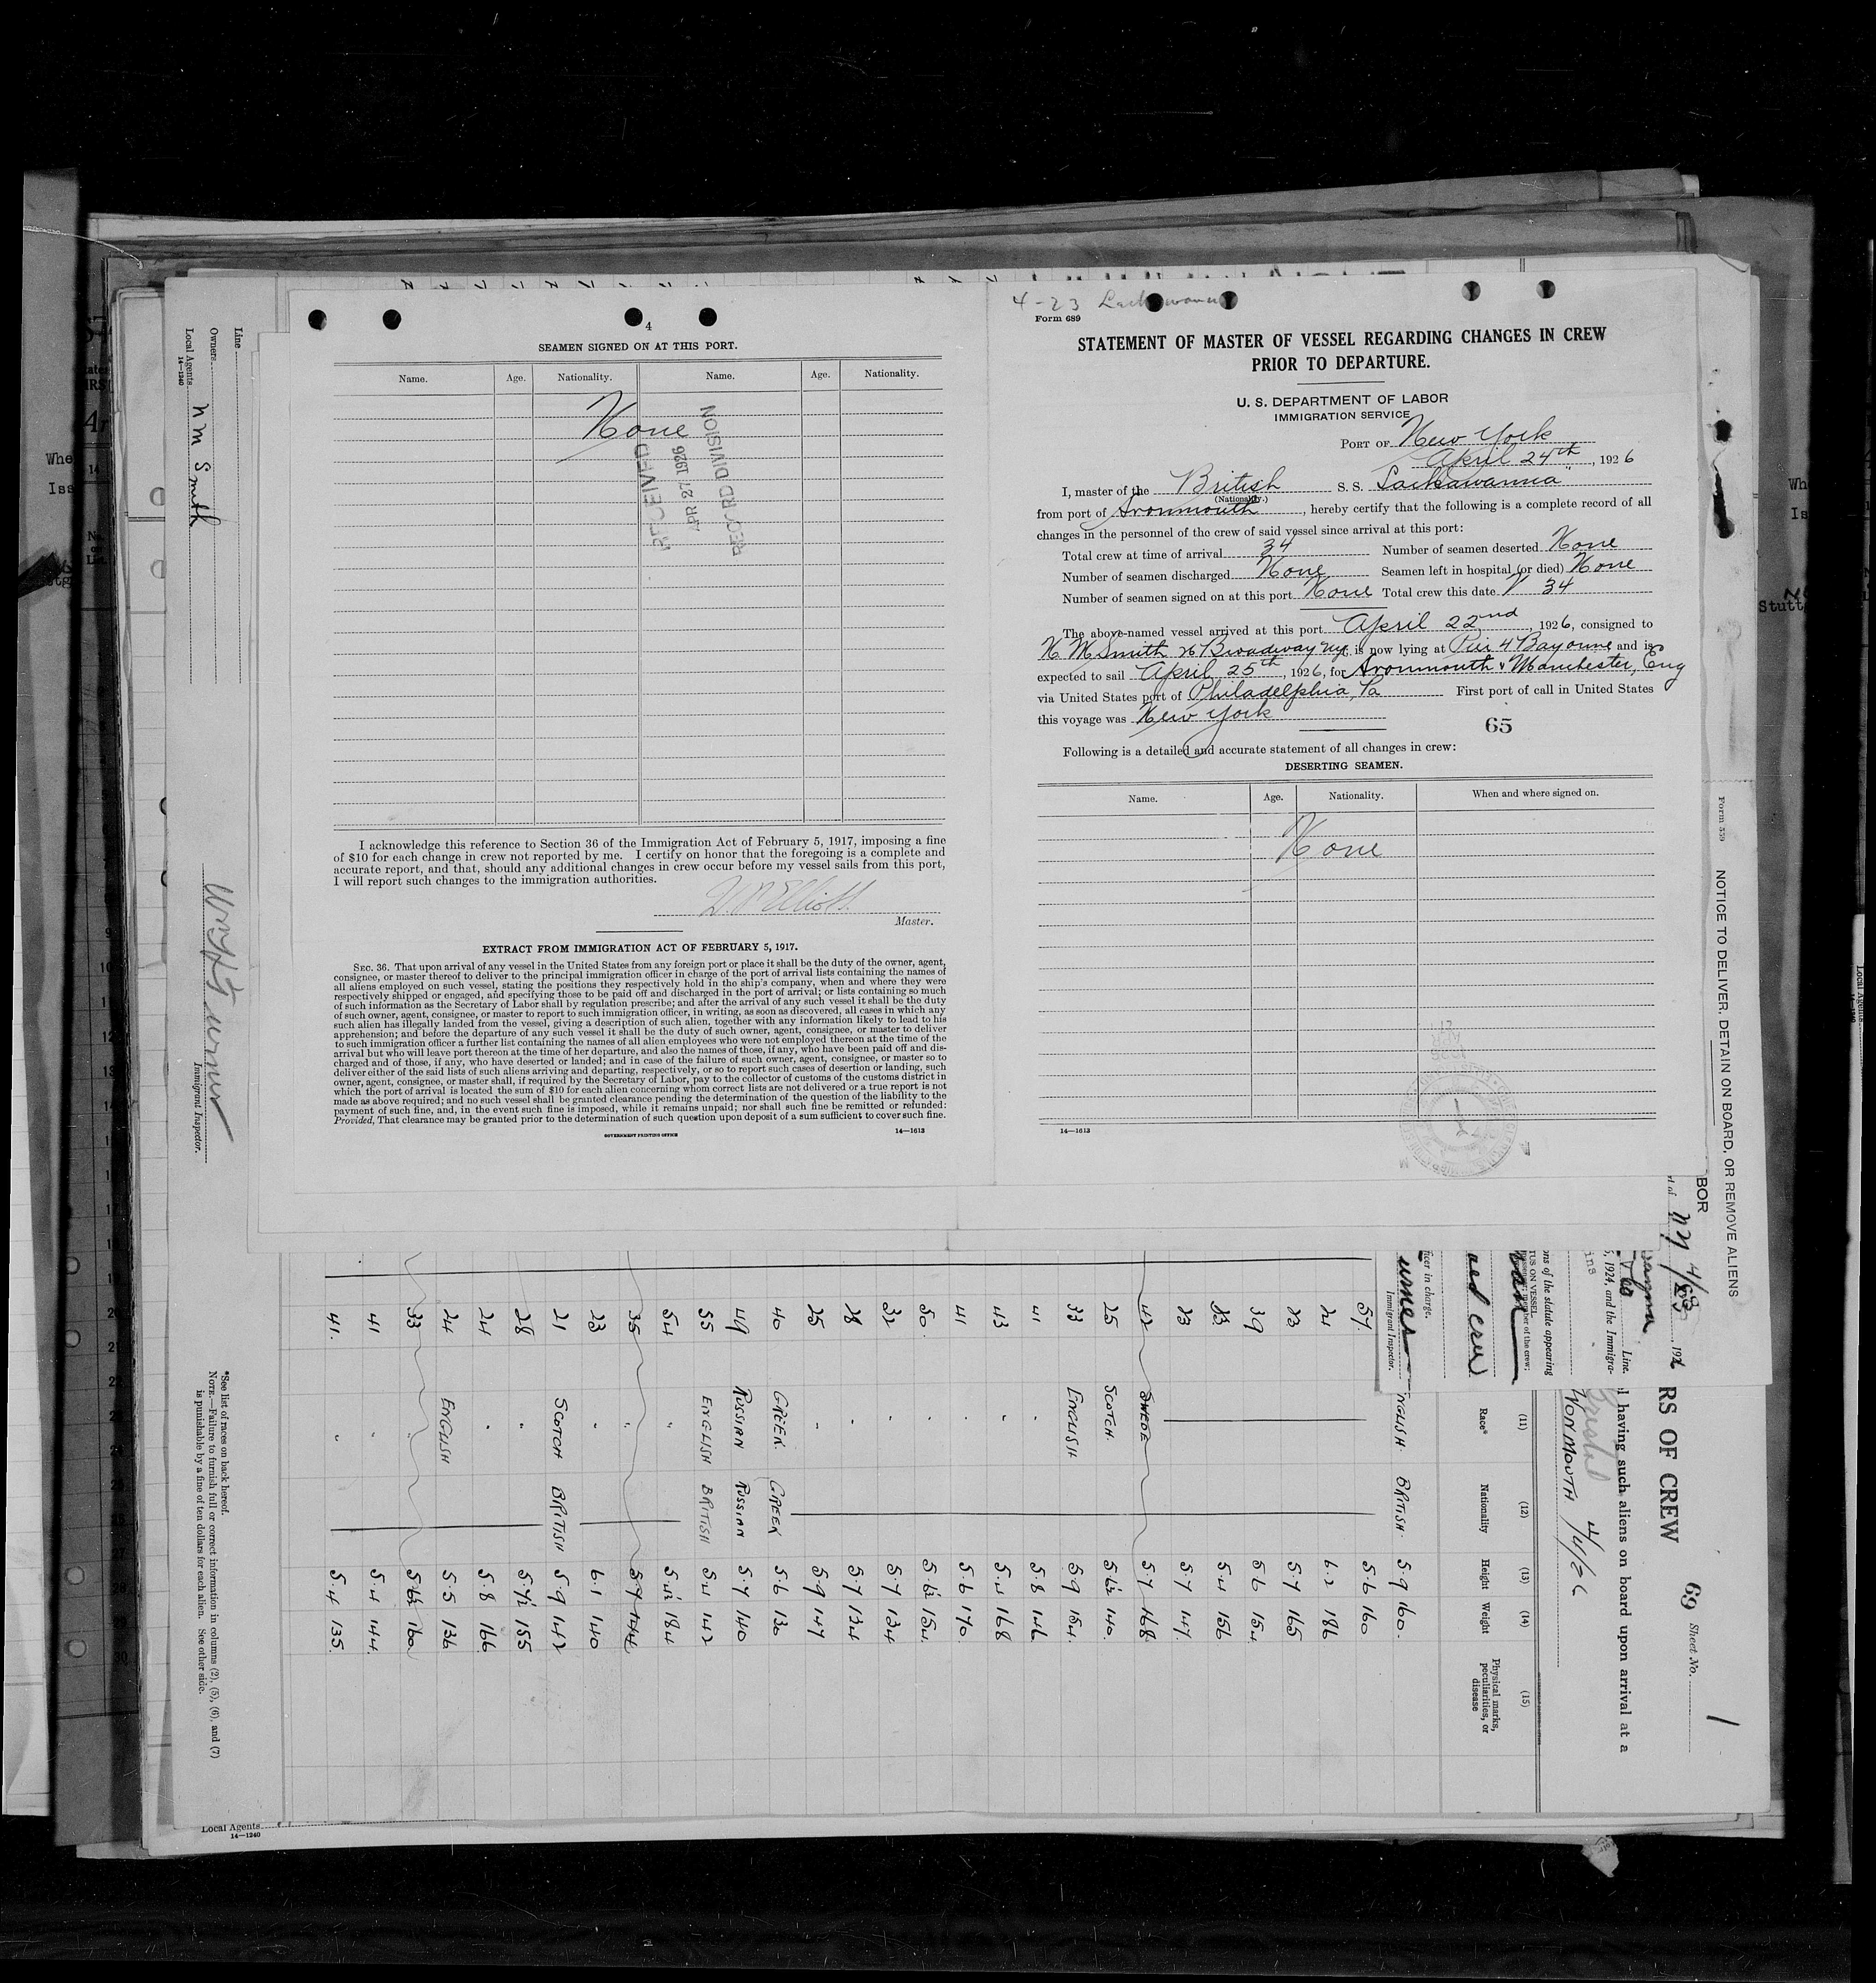 4
SEAMEN SIGNED ON AT THIS PORT.
Name. Age. Nationality. Name. Age. Nationality.
None
RECEIVED
APR 27 1926
RECORD DIVISION
I acknowledge this reference to Section 36 of the Immigration Act of February 5, 1917, imposing a fine
of $10 for each change in crew not reported by me. I certify on honor that the foregoing is a complete and
accurate report, and that, should any additional changes in crew occur before my vessel sails from this port,
I will report such changes to the immigration authorities.
Elliott
Master.
EXTRACT FROM IMMIGRATION ACT OF FEBRUARY 5, 1917.
SEC. 36. That upon arrival of any vessel in the United States from any foreign port or place it shall be the duty of the owner, agent,
consignee, or master thereof to deliver to the principal immigration officer in charge of the port of arrival lists containing the names of
all aliens employed on such vessel, stating the positions they respectively hold in the ship's company, when and where they were
respectively shipped or engaged, and specifying those to be paid off and discharged in the port of arrival; or lists containing so much
of such information as the Secretary of Labor shall by regulation prescribe; and after the arrival of any such vessel it shall be the duty
of such owner, agent, consignee, or master to report to such immigration officer, in writing, as soon as discovered, all cases in which any
such alien has illegally landed from the vessel, giving a description of such alien, together with any information likely to lead to his
apprehension; and before the departure of any such vessel it shall be the duty of such owner, agent, consignee, or master to deliver
to such immigration officer a further list containing the names of all alien employees who were not employed thereon at the time of the
arrival but who will leave port thereon at the time of her departure, and also the names of those, if any, who have been paid off and dis-
charged and of those, if any, who have deserted or landed; and in case of the failure of such owner, agent, consignee, or master so to
deliver either of the said lists of such aliens arriving and departing, respectively, or so to report such cases of desertion or landing, such
owner, agent, consignee, or master shall, if required by the Secretary of Labor, pay to the collector of customs of the customs district in
which the port of arrival is located the sum of $10 for each alien concerning whom correct lists are not delivered or a true report is not
made as above required; and no such vessel shall be granted clearance pending the determination of the question of the liability to the
payment of such fine, and, in the event such fine is imposed, while it remains unpaid; nor shall such fine be remitted or refunded:
Provided, That clearance may be granted prior to the determination of such question upon deposit of a sum sufficient to cover such fine.
GOVERNMENT PRINTING OFFICE 14—1613
4-23 Lackawanna
Form 689
STATEMENT OF MASTER OF VESSEL REGARDING CHANGES IN CREW
PRIOR TO DEPARTURE.
U. S. DEPARTMENT OF LABOR
IMMIGRATION SERVICE
PORT OF New York
April 24th, 1926
I, master of the British S. S. Lackawanna
(Nationality.)
from port of Avonmouth, hereby certify that the following is a complete record of all
changes in the personnel of the crew of said vessel since arrival at this port:
Total crew at time of arrival 34 Number of seamen deserted None
Number of seamen discharged None Seamen left in hospital (or died) None
Number of seamen signed on at this port None Total crew this date 34
The above-named vessel arrived at this port April 22nd, 1926, consigned to
N M Smith 26 Broadway NYC is now lying at Pier 4 Bayonne and is
expected to sail April 25th, 1926, for Avonmouth & Manchester, Eng
via United States port of Philadelphia, Pa First port of call in United States
this voyage was New York
65
Following is a detailed and accurate statement of all changes in crew:
DESERTING SEAMEN.
Name. Age. Nationality. When and where signed on.
None
14—1613
Line
Owners
Local Agents N M Smith
14—1240
Immigrant Inspector.
*See list of races on back hereof.
NOTE.—Failure to furnish full or correct information in columns (2), (5), (6), and (7)
is punishable by a fine of ten dollars for each alien. See other side.
Form 559 NOTICE TO DELIVER, DETAIN ON BOARD, OR REMOVE ALIENS
BOR
RS OF CREW
69 Sheet No. 1
having such aliens on board upon arrival at a
Line.
, 1924, and the Immigra-
ons of the statute appearing
Immigrant Inspector.
(11) (12) (13) (14) (15)
Race* Nationality Height Weight Physical marks, peculiarities, or disease
BRITISH 5.9 160
57 5.6 160
21 6.2 186
23 5.7 165
39 5.6 154
5.4 156
23 5.7 147
42 SWEDE 5.7 168
25 SCOTCH 5.6½ 140
33 ENGLISH 5.9 154
41 " 5.8 146
43 " 5.4 168
41 " 5.6 170
50 " 5.6½ 154
32 " 5.7 134
28 " 5.7 134
25 " 5.9 147
40 GREEK GREEK 5.6 130
49 RUSSIAN RUSSIAN 5.7 140
55 ENGLISH BRITISH 5.4 142
54 " 5.4½ 184
35 " 5.7 144
23 " 6.1 140
21 SCOTCH BRITISH 5.9 142
28 " 5.7½ 155
24 " 5.8 166
24 ENGLISH 5.5 136
33 " 5.6½ 160
41 " 5.4 144
41 " 5.4 135
Local Agents
14—1240